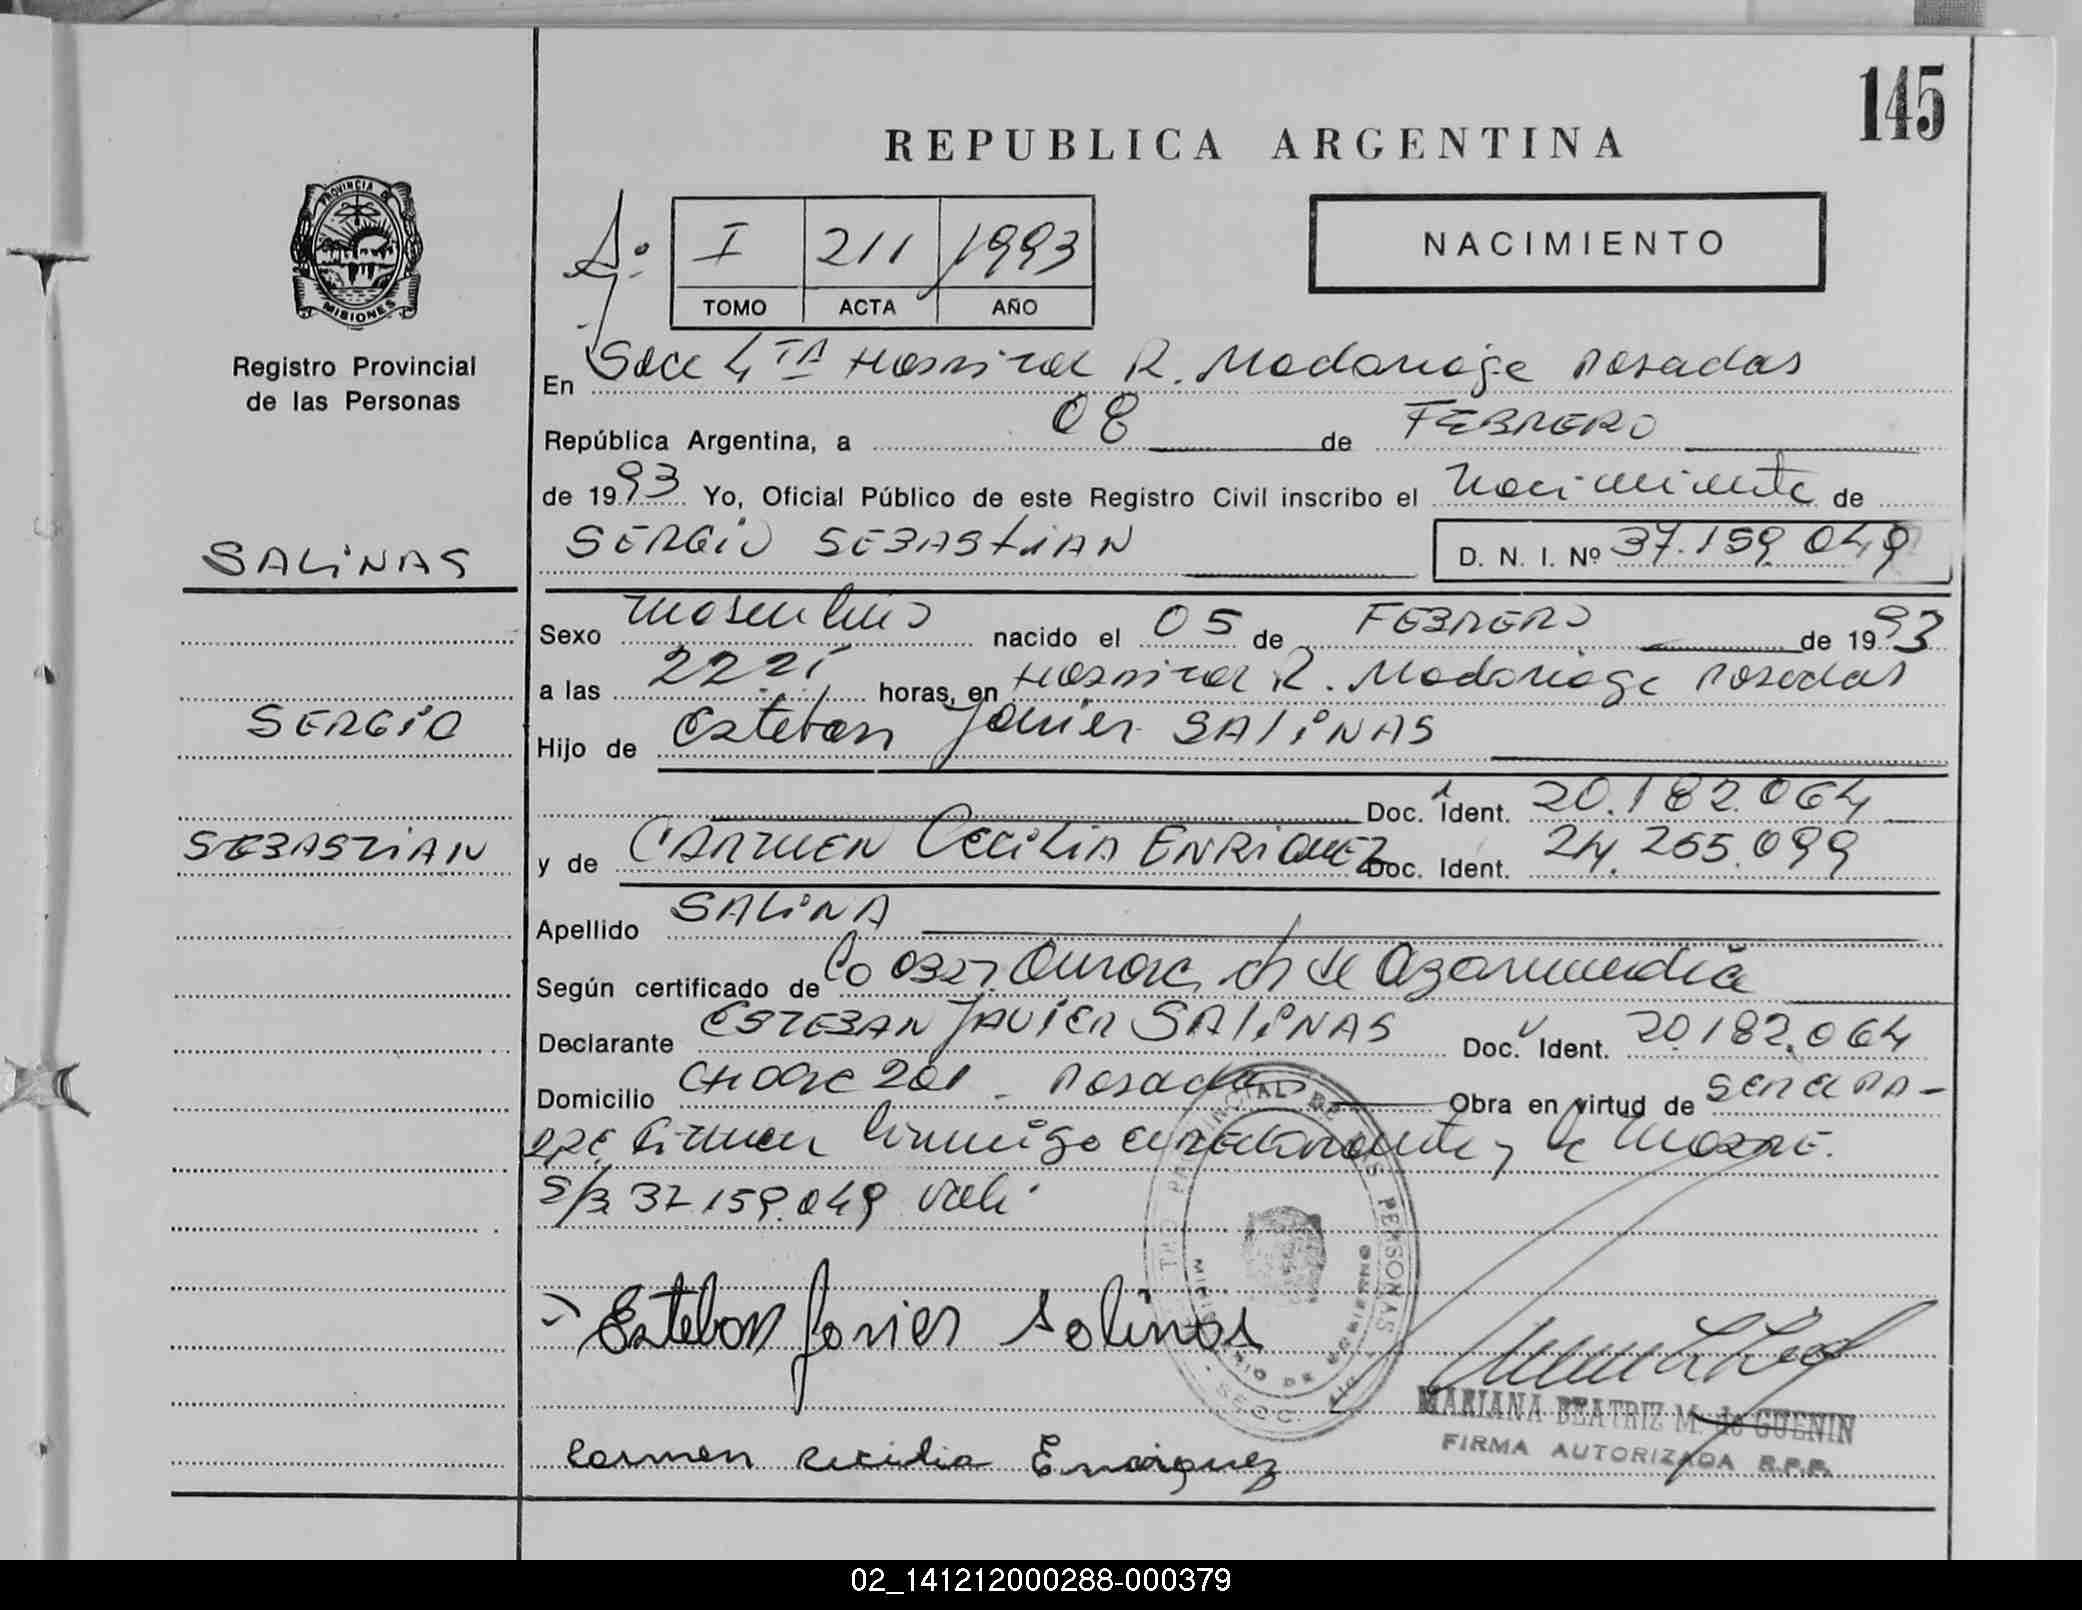 145
REPUBLICA ARGENTINA
PROVINCIA DE
MISIONES
Registro Provincial
de las Personas
I 211 1993
TOMO ACTA AÑO
NACIMIENTO
En Secc 4TA Hospital R. Madariaga Posadas
República Argentina, a 08 de FEBRERO
de 1993 Yo, Oficial Público de este Registro Civil inscribo el nacimiento de
SALINAS
SERGIO SEBASTIAN D. N. I. Nº 37.159.049
Sexo masculino nacido el 05 de FEBRERO de 1993
a las horas, en Hospital R. Madariaga Posadas
SERGIO
Hijo de Esteban Javier SALINAS
Doc. Ident. 20.182.064
SEBASTIAN
y de CARMEN Cecilia ENRIQUEZ Doc. Ident. 24.265.099
Apellido SALINA
Según certificado de
Declarante ESTEBAN JAVIER SALINAS Doc. Ident. 20.182.064
Domicilio 201 - Posadas Obra en virtud de
firman conmigo declarante y la MADRE.
S/R 37.159.049 Vale
Esteban Javier Salinas
MARIANA BEATRIZ M. de GUENIN
FIRMA AUTORIZADA R.P.P.
Carmen Cecilia Enriquez
02_141212000288-000379